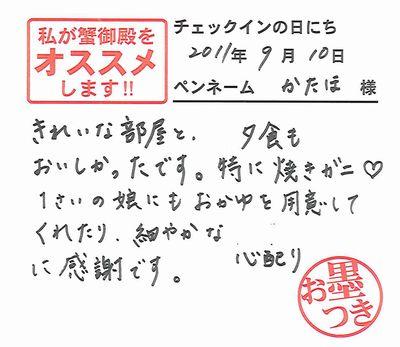 私が蟹御殿を
オススメ
します!!
チェックインの日にち
2011年 9月 10日
ペンネーム かたほ 様
きれいな部屋と、夕食も
おいしかったです。特に焼きガニ♡
1さいの娘にもおかゆを用意して
くれたり、細やかな心配り
に感謝です。
お墨つき